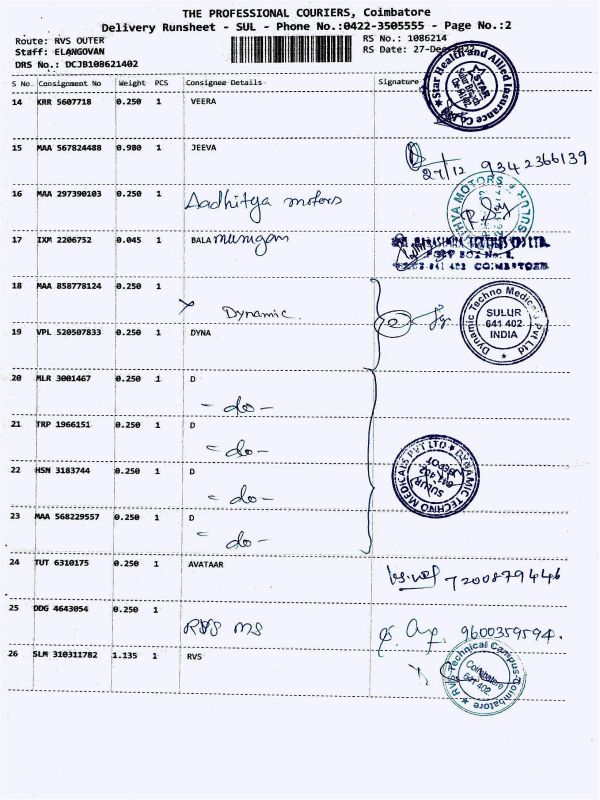 THE PROFESSIONAL COURIERS, Coimbatore
Delivery Runsheet - SUL - Phone No.:0422-3505555 - Page No.:2
Route: RVS OUTER
RS No.: 1086214
Staff: ELANGOVAN
RS Date: 27-Dec-2022
DRS No.: DCJB108621402
S No. Consignment No Weight PCS Consignee Details Signature
14 KRR 5607718 0.250 1 VEERA
Star Health and Allied Insurance Co.
STAR
Sulur
15 MAA 567824488 0.980 1 JEEVA
27/12 9342366139
16 MAA 297390103 0.250 1 Aadhitya motors
MOTORS
SULUR
17 IXM 2206752 0.045 1 BALA murugan
POST BOX No.
641 402 COIMBATORE
18 MAA 858778124 0.250 1
Dynamic
Dynamic Techno Medicals Pvt Ltd
SULUR
641 402
INDIA
19 VPL 520507833 0.250 1 DYNA
20 MLR 3001467 0.250 1 D
- do -
21 TRP 1966151 0.250 1 D
- do -
DYNAMIC TECHNO MEDICALS PVT LTD
DEPOT
SULUR
641 402
22 HSN 3183744 0.250 1 D
- do -
23 MAA 568229557 0.250 1 D
- do -
24 TUT 6310175 0.250 1 AVATAAR
7200879446
25 DDG 4643054 0.250 1
RVS MS
9600359594.
26 SLM 310311782 1.135 1 RVS
RVS Technical Campus-Coimbatore
Coimbatore
641 402